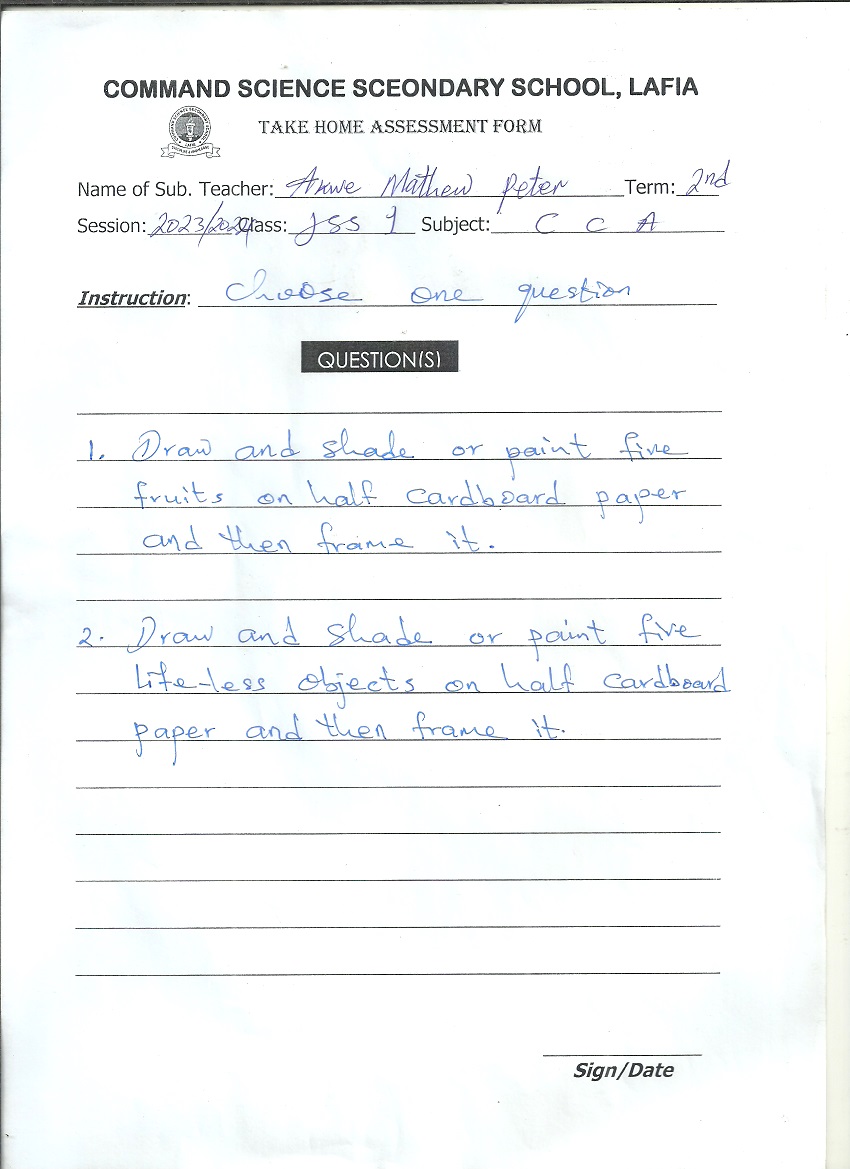 COMMAND SCIENCE SCEONDARY SCHOOL, LAFIA
TAKE HOME ASSESSMENT FORM
Name of Sub. Teacher: Akwe Mathew Peter Term: 2nd
Session: 2023/2024 Class: JSS 1 Subject: C C A
Instruction: Choose one question
QUESTION(S)
1. Draw and shade or paint five
fruits on half cardboard paper
and then frame it.
2. Draw and shade or paint five
life-less objects on half cardboard
paper and then frame it.
Sign/Date